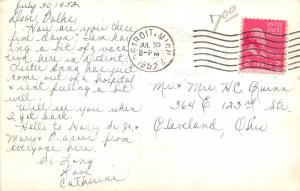 July 30, 1952
Dear Folks,
How are you these
fine days? I am hav-
ing a bit of a vaca-
tion here in Detroit.
Sister Anna has just
come out of a hospital
& isn't feeling a bit
well.
Will see you when I
get back.
Hello to Harry
Mary & from
everyone here.
So Long
Love
Catherine
7.00
DETROIT, MICH.
JUL 30
8-PM
1952
UNITED STATES
2 CENTS 2
Mr. & Mrs. H.C. Quinn
364 E. 123rd St.
Cleveland, Ohio